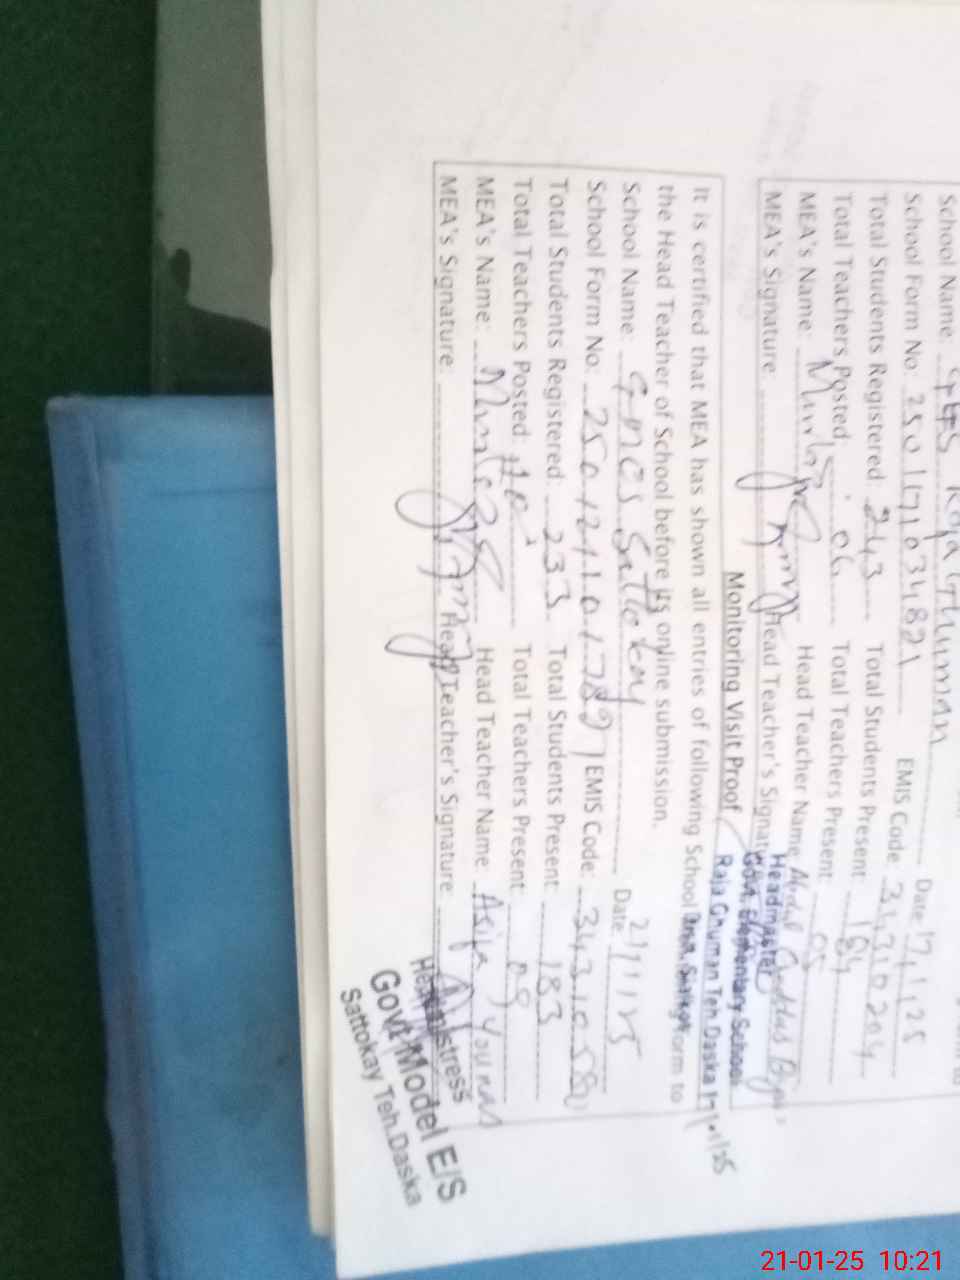 School Name: GES Raja Ghuman Date 17/1/25
School Form No: 25017103482 EMIS Code 34310204
Total Students Registered 243 Total Students Present: 184
Total Teachers Posted: 06 Total Teachers Present: 05
MEA's Name: Head Teacher Name Abdul
MEA's Signature: Head Teacher's Signature
Headmaster
Govt. Elementary School
Raja Ghuman Teh Daska 17/1/25
Monitoring Visit Proof
It is certified that MEA has shown all entries of following School form to
the Head Teacher of School before its online submission.
School Name: GMES Sattokay Date 21/1/25
School Form No: EMIS Code:
Total Students Registered 233 Total Students Present: 183
Total Teachers Posted 10 Total Teachers Present: 09
MEA's Name: Head Teacher Name: Asija Younas
MEA's Signature: Head Teacher's Signature:
Headmistress
Govt Model E/S
Sattokay Teh.Daska
21-01-25 10:21